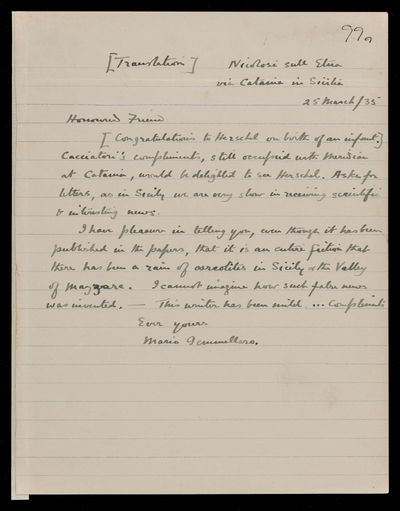 99a
[Translation] Nicolosi sull Etna
via Catania in Sicilia
25 March/35
Honoured Friend
[Congratulations to Herschel on birth of an infant.]
Cacciatori's compliments, still occupied with Meridian
at Catania, would be delighted to see Herschel. Asks for
letters, as in Sicily we are very slow in receiving scientific
& interesting news.
I have pleasure in telling you, even though it has been
published in the papers, that it is an entire fiction that
there has been a rain of aerolites in Sicily & the Valley
of Mazzara. I cannot imagine how such false news
was invented. — This winter has been mild. ... Compliments
Ever yours
Mario Gemmellaro.